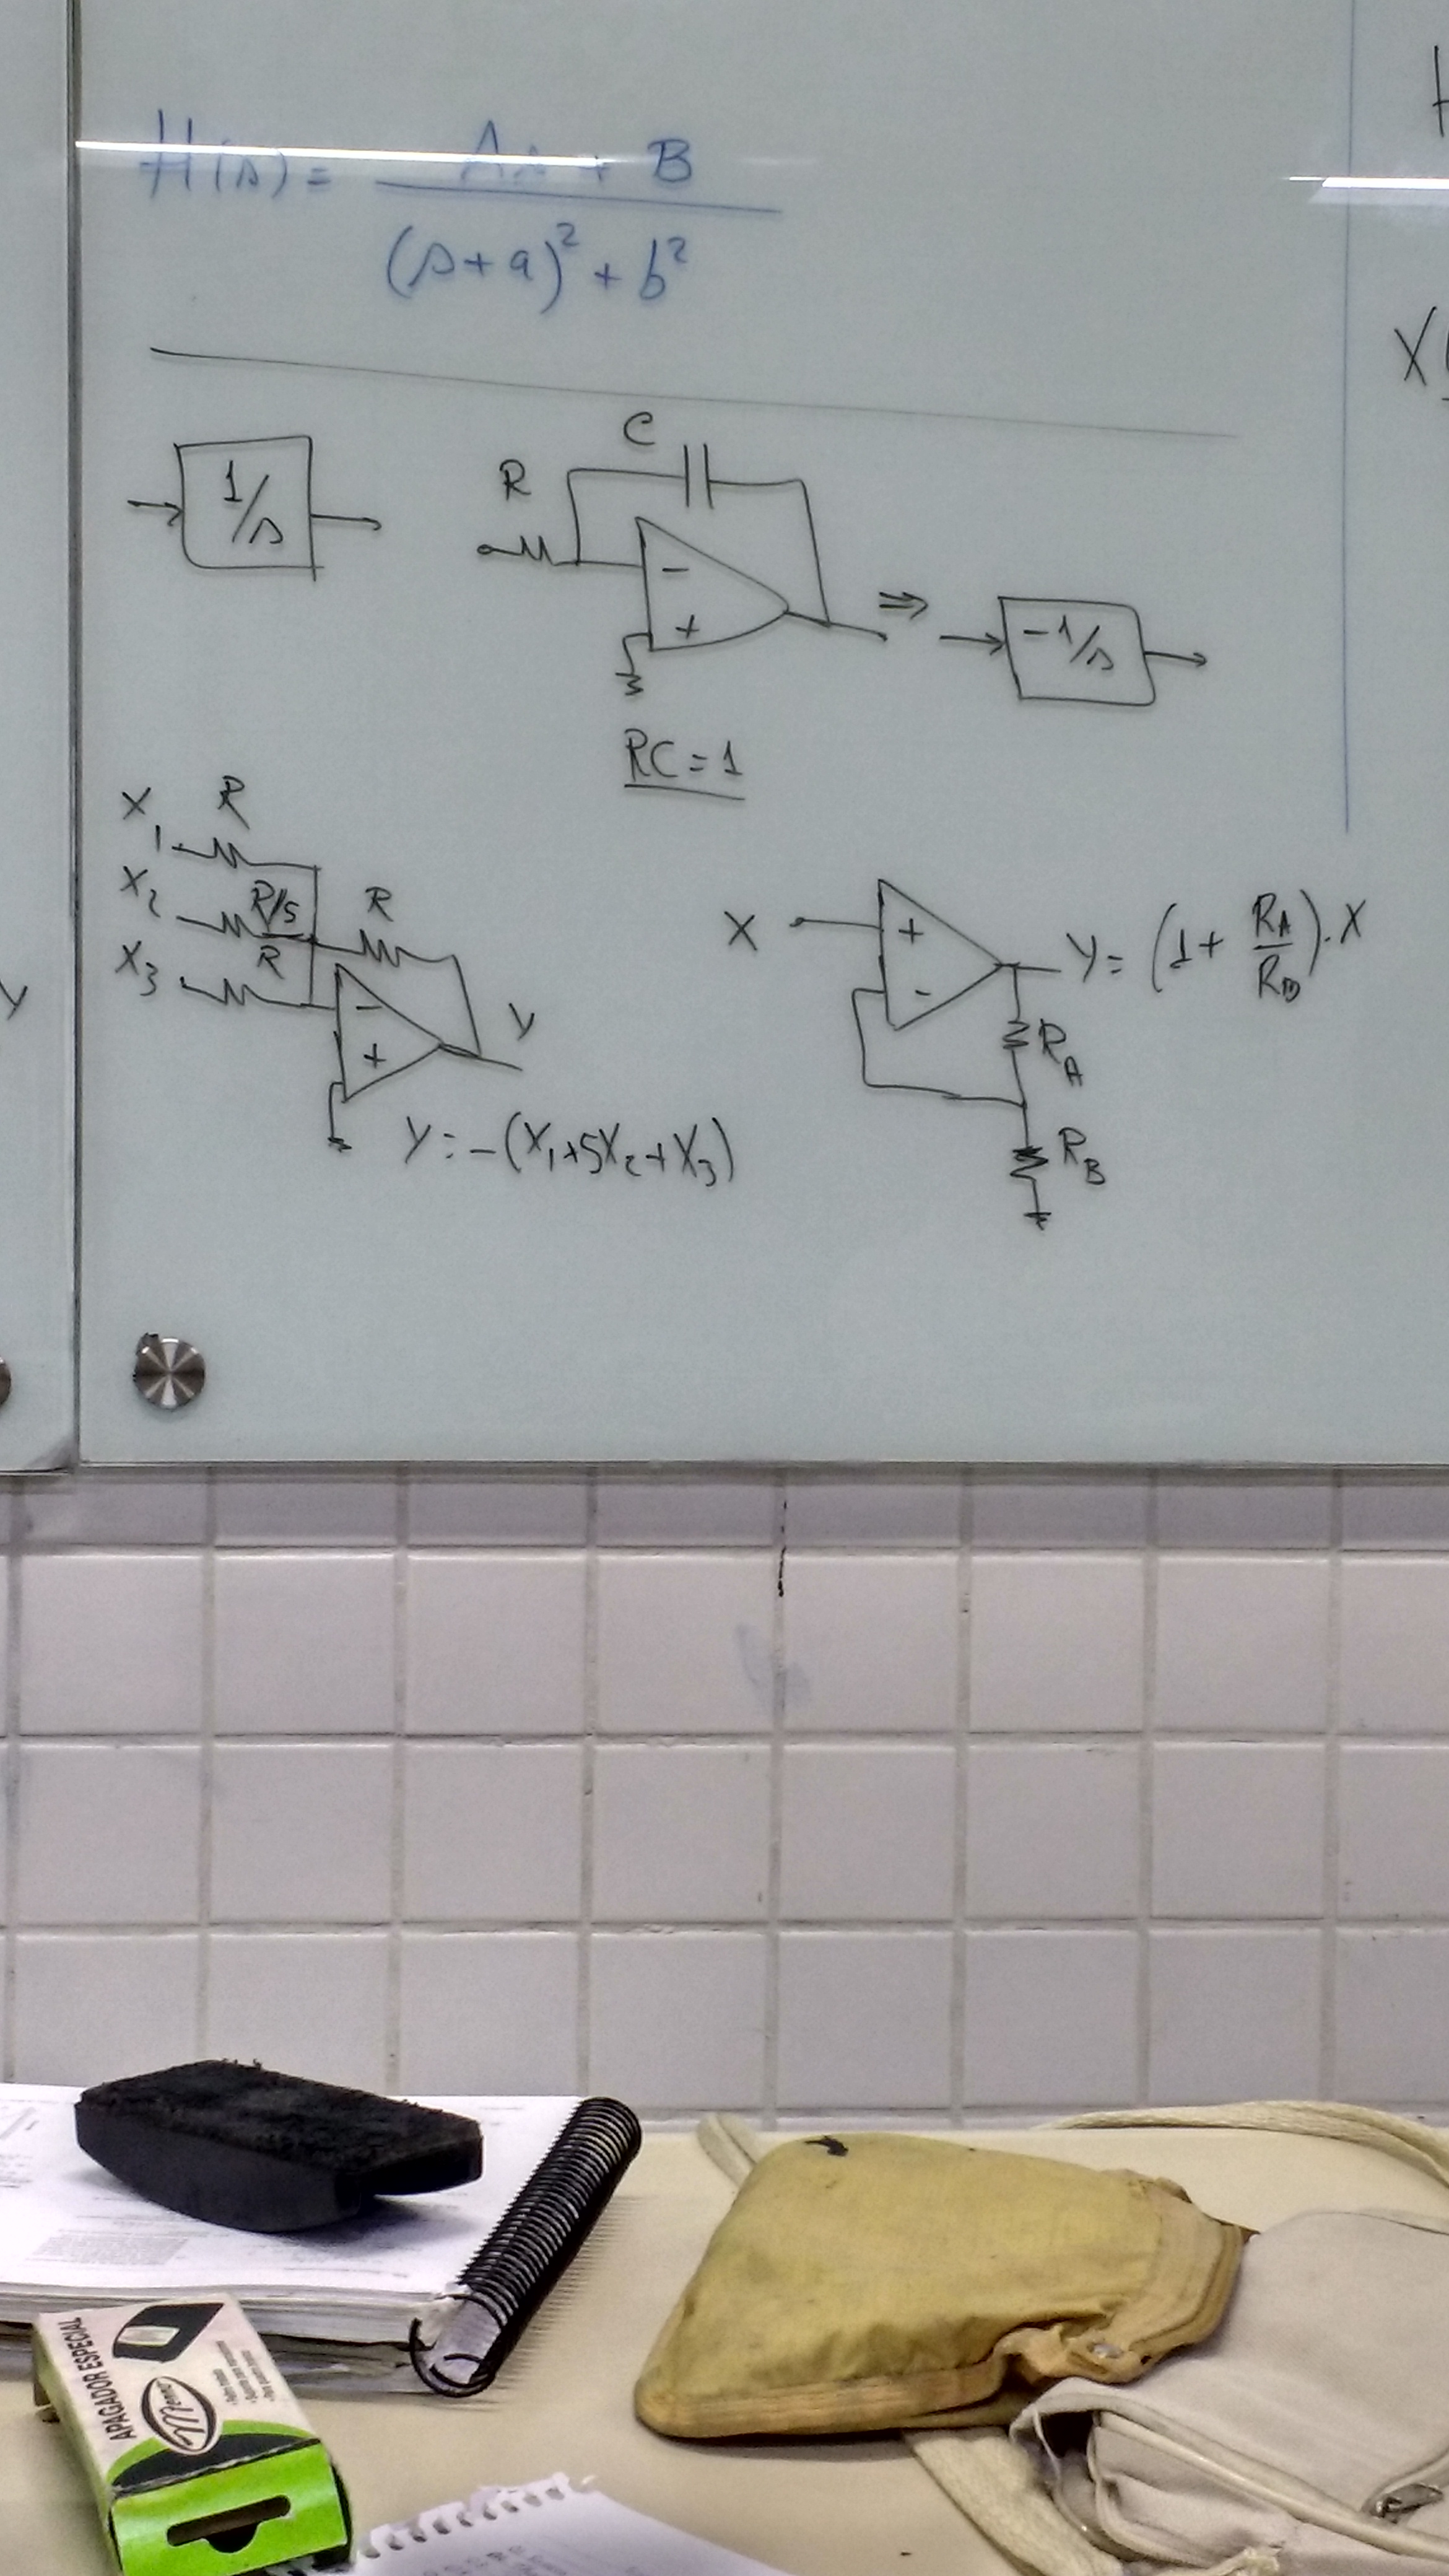 H(s) = As + B
(s+a)² + b²
1/s
C
R
-
+
⇒
-1/s
RC = 1
X₁ R
X₂ R/5 R
X₃ R
-
+
Y
Y = -(X₁+5X₂+X₃)
X
+
-
Y = (1 + R_A/R_B).X
R_A
R_B
Y
H
X(
APAGADOR ESPECIAL